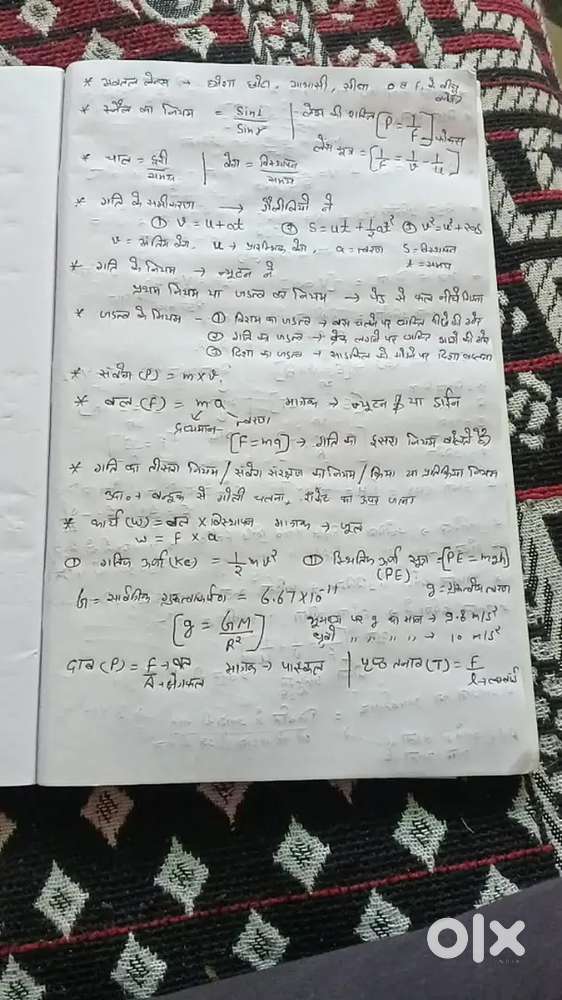 * अवतल लेन्स → हमेशा छोटा, आभासी, सीधा O व F₁ के बीच
* स्नैल का नियम = Sin i / Sin r | लेंस की शक्ति [P = 1/F] फोकस
लेंस सूत्र = [1/F = 1/v - 1/u]
* चाल = दूरी / समय | वेग = विस्थापन / समय
* गति के समीकरण → गैलीलियो ने
① v = u + at ② S = ut + ½at² ③ v² = u² + 2as
v = अंतिम वेग, u → प्रारम्भिक वेग, a = त्वरण S = विस्थापन
t = समय
* गति के नियम → न्यूटन ने
प्रथम नियम या जड़त्व का नियम → पेड़ से फल नीचे गिरना
* जड़त्व के नियम - ① विराम का जड़त्व → बस चलने पर व्यक्ति पीछे की ओर
② गति का जड़त्व → ब्रेक लगाने पर व्यक्ति आगे की ओर
③ दिशा का जड़त्व → साइकिल को मोड़ने पर दिशा बदलना
* संवेग (P) = m x v
* बल (F) = m a मात्रक → न्यूटन या डाईन
द्रव्यमान त्वरण
[F = ma] → गति का दूसरा नियम कहते हैं
* गति का तीसरा नियम / संवेग संरक्षण का नियम / क्रिया या प्रतिक्रिया नियम
उदा० → बन्दूक से गोली चलना, रॉकेट का ऊपर जाना
* कार्य (w) = बल x विस्थापन मात्रक → जूल
w = F x a
① गतिज ऊर्जा (Ke) = ½ m v² ② स्थितिज ऊर्जा सूत्र = [PE = mgh]
(PE)
G = सार्वत्रिक गुरुत्वाकर्षण = 6.67 x 10⁻¹¹ g = गुरुत्वीय त्वरण
[g = GM / R²] भूमध्य पर g का मान → 9.8 m/s²
ध्रुवों " " " " → 10 m/s²
दाब (P) = F → बल / A → क्षेत्रफल मात्रक → पास्कल | पृष्ठ तनाव (T) = F / l → लम्बाई
olx
INDIA